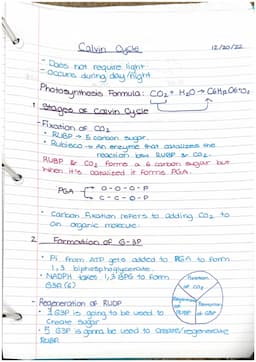 Calvin Cycle 12/20/22
- Does not require light
- Occurs during day/night
Photosynthesis Formula: CO₂ + H₂O → C6H12O6+O₂
1. Stages of Calvin Cycle
- Fixation of CO₂
• RUBP → 5 carbon sugar.
• Rubisco → An enzyme that catalizes the
reaction btw RUBP & CO₂.
RUBP & CO₂ forms a 6 carbon sugar but
when it's catalized it forms PGA.
PGA O-O-O-P
C-C-O-P
• Carbon fixation refers to adding CO₂ to
an organic molecule.
2. Formation of G-3P
• Pi from ATP gets added to PGA to form
1,3 biphosphoglycerate.
• NADPH takes 1,3 BPG to form
G3P (6)
Fixation
of CO₂
- Regeneration of RUDP
• 3 G3P is going to be used to
create sugar
of G3P
• 5 G3P is gonna be used to create/regenerate
RUBP.